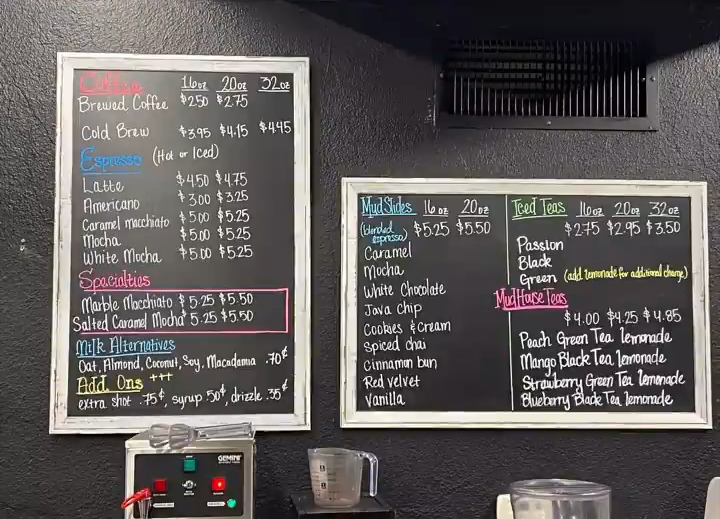 Coffee 16oz 20oz 32oz
Brewed Coffee $2.50 $2.75
Cold Brew $3.95 $4.15 $4.45
Espresso (Hot or Iced)
Latte $4.50 $4.75
Americano $3.00 $3.25
Caramel macchiato $5.00 $5.25
Mocha $5.00 $5.25
White Mocha $5.00 $5.25
Specialties
Marble Macchiato $5.25 $5.50
Salted Caramel Mocha $5.25 $5.50
Milk Alternatives
Oat, Almond, Coconut, Soy, Macadamia .70¢
Add Ons +++
extra shot .75¢, syrup 50¢, drizzle .35¢
MudSlides 16oz 20oz
(blended espresso) $5.25 $5.50
Caramel
Mocha
White Chocolate
Java chip
Cookies & cream
Spiced chai
Cinnamon bun
Red velvet
Vanilla
Iced Teas 16oz 20oz 32oz
$2.75 $2.95 $3.50
Passion
Black
Green (add lemonade for additional charge)
MudHouse Teas
$4.00 $4.25 $4.85
Peach Green Tea lemonade
Mango Black Tea lemonade
Strawberry Green Tea lemonade
Blueberry Black Tea lemonade
GEMINI